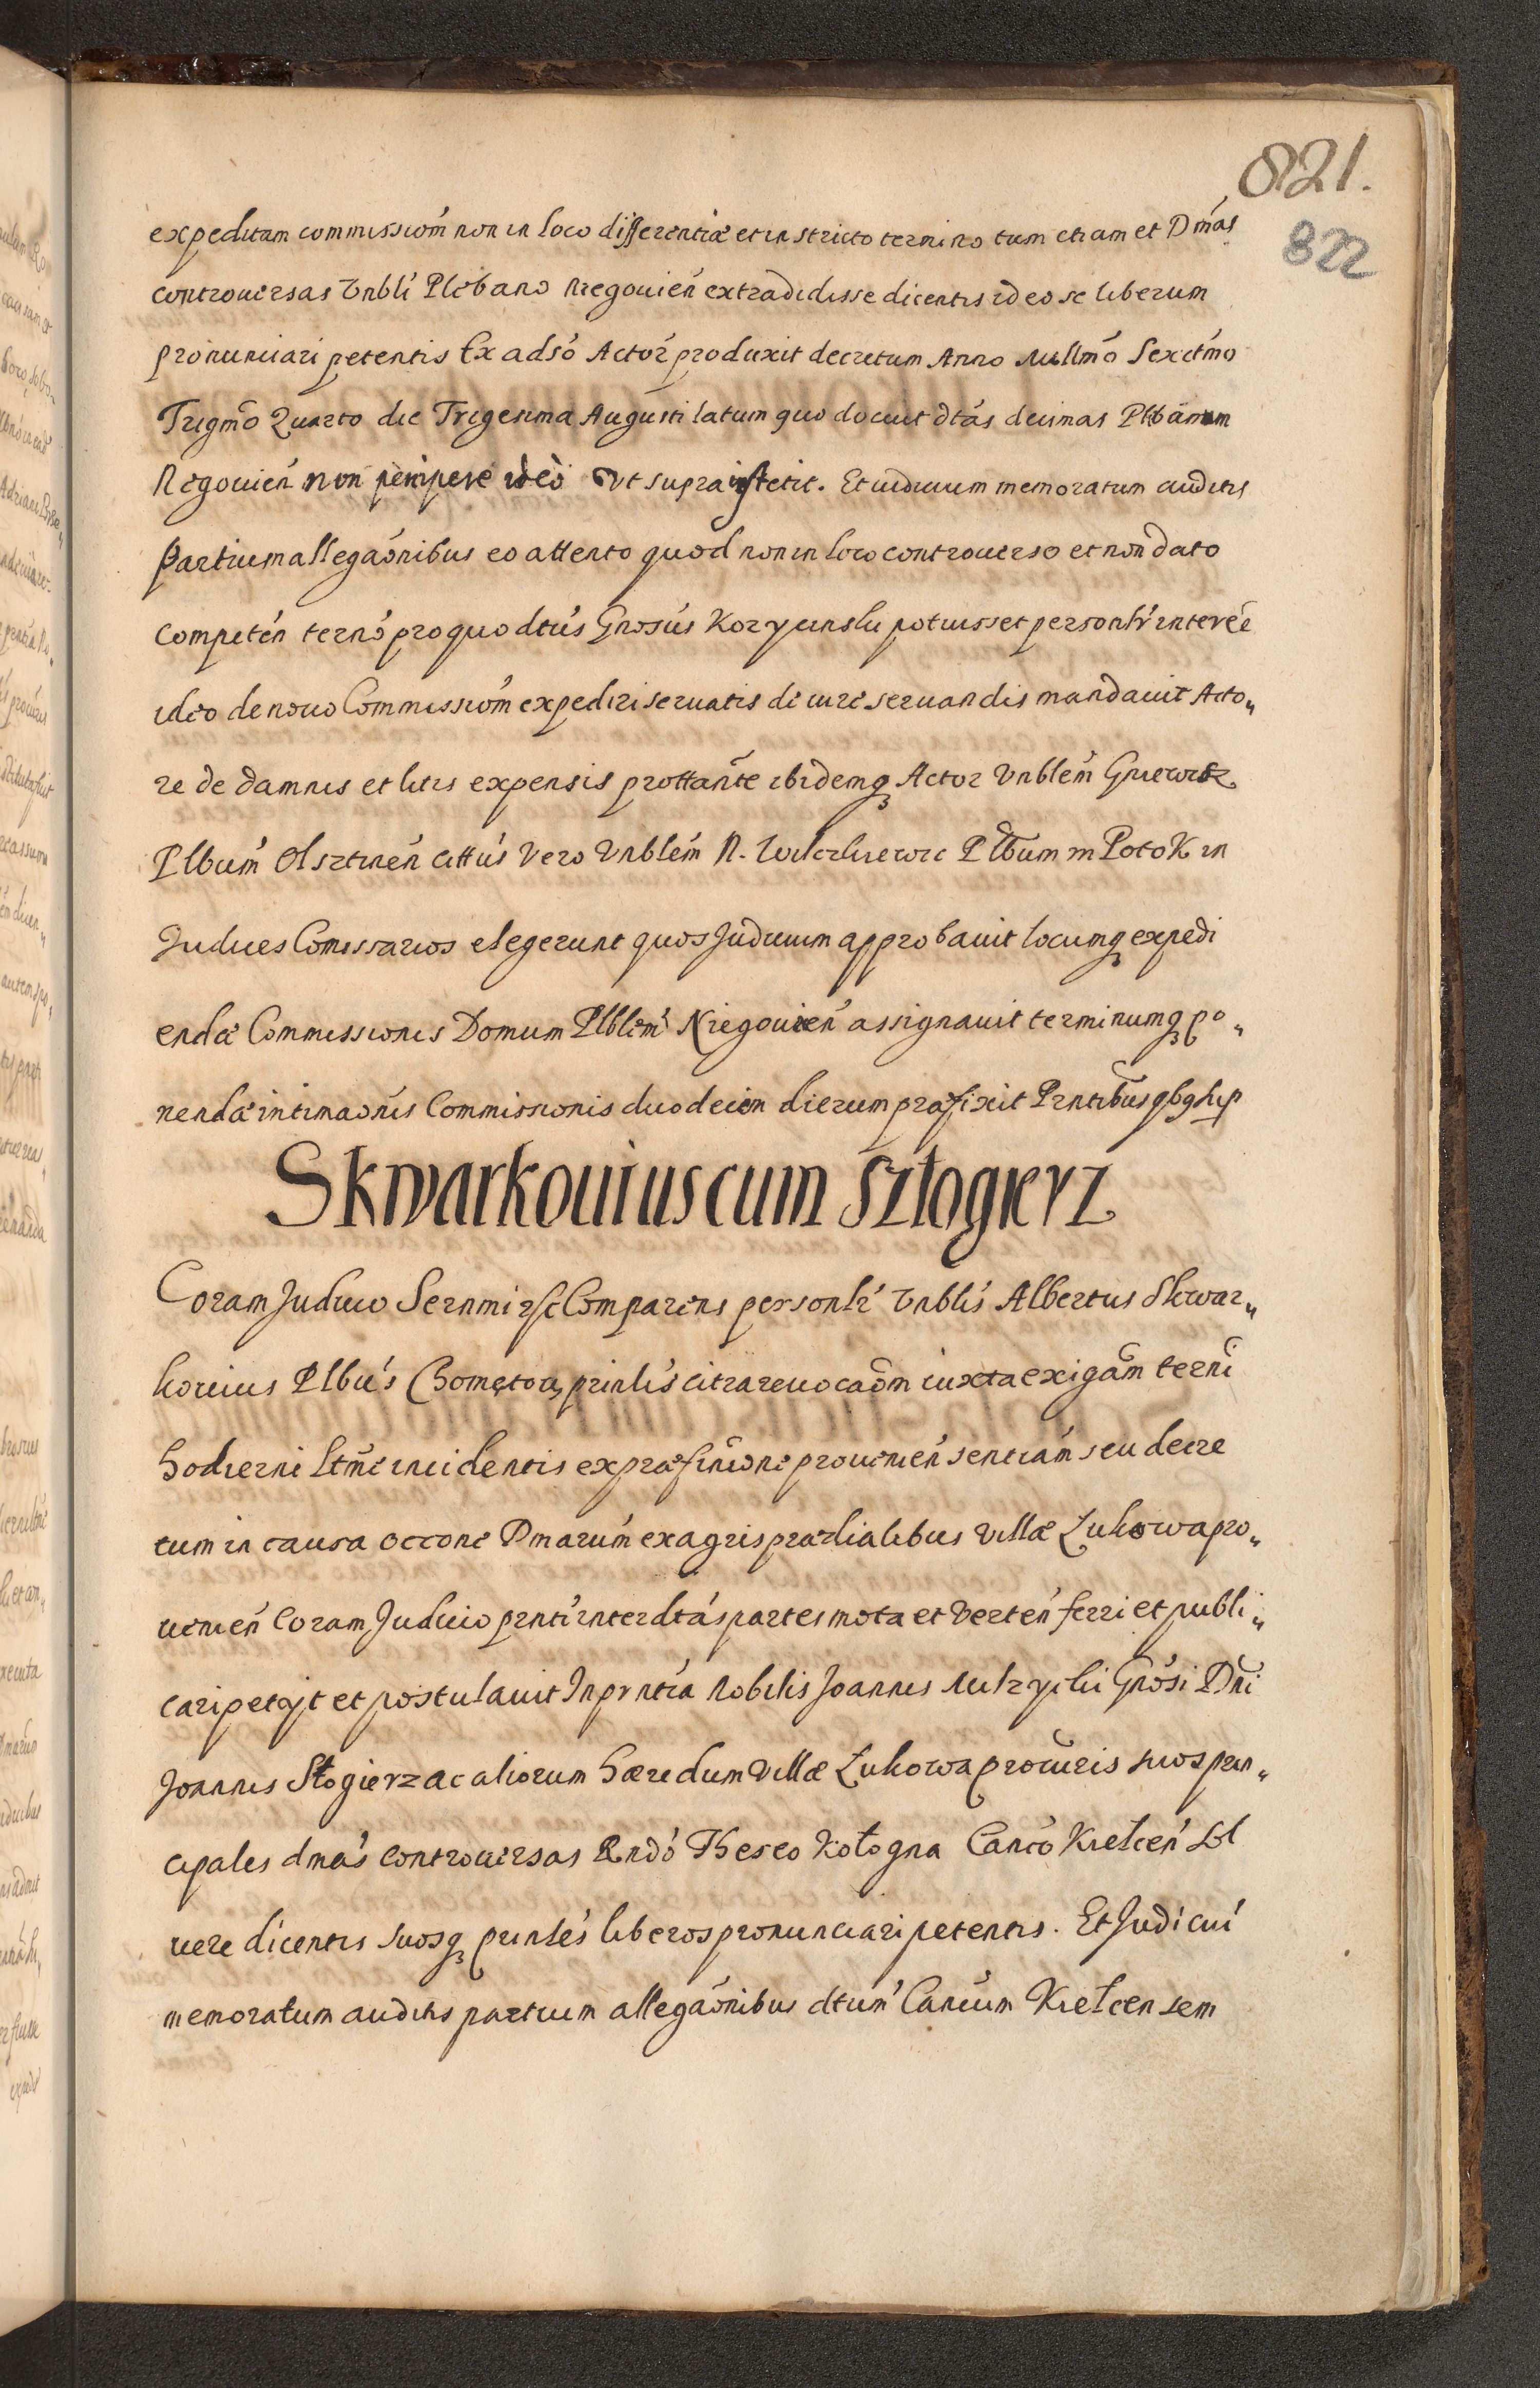 821.
822
expeditam commissiom̃ non in loco differentiæ et in stricto termino tum etiam et Dmás
controuersas Vnbli Plebano Niegouień extradidisse dicentis ideo se liberum
pronunciari petentis Ex adsó Actor produxit decretum Anno Millmó Sexctmó
Trigmó Quarto die Trigesima Augusti latum quo docuit dtás decimas Plbanum
Niegouień non percipere ideo Vt supra institit. Et iudicium memoratum auditis
Partium allegaónibus eo attento quod non in loco controuerso et non dato
competeń ternó pro quo dtús Gnosús Koryciński potuisset personlr interée
ideo de nouo Commissiom̃ expediri seruatis de iure seruandis mandauit Acto„
re de damnis et litis expensis prottante ibidemq Actor Vnblem
Plbum Olsztineń cittús Vero Vnblém N. Plbum in Potok in
Judices Comissarios elegerunt quos Judicium approbauit locumq expedi
endæ Commissionis Domum Plblem Niegouień assignauit terminumq po„
nendæ intimaonis Commissionis duodecim dierum præfixit Prntibus
Skwarkouius cum Sztogierz
Coram Judicio Sernmi Comparens personlr Vnblis Albertus Skwar„
kouius Plbús Chomętou prinlis citra reuocaom̃ iuxta exigam̃ terni
hodierni ltme incidentis ex præfinione prouenień sentiam̃ seu decre
tum in causa occone Dmarum ex agris prædialibus Villæ Łukowa pro„
uenień Coram Judicio prnti inter dtás partes mota et Verteń ferri et publi„
cari petijt et postulauit In prntia Nobilis Joannis Gnosi Dni
Joannis Stogierz ac aliorum hæredum Villæ Łukowa procuris suos prin„
cipales dmás controuersas Rndó Theseo Kotogna Canco Kielceń Sol
uere dicentis suosq prinles liberos pronunciari petentis. Et Judicui
memoratum auditis partium allegaónibus dtum Cancum Kielcensem